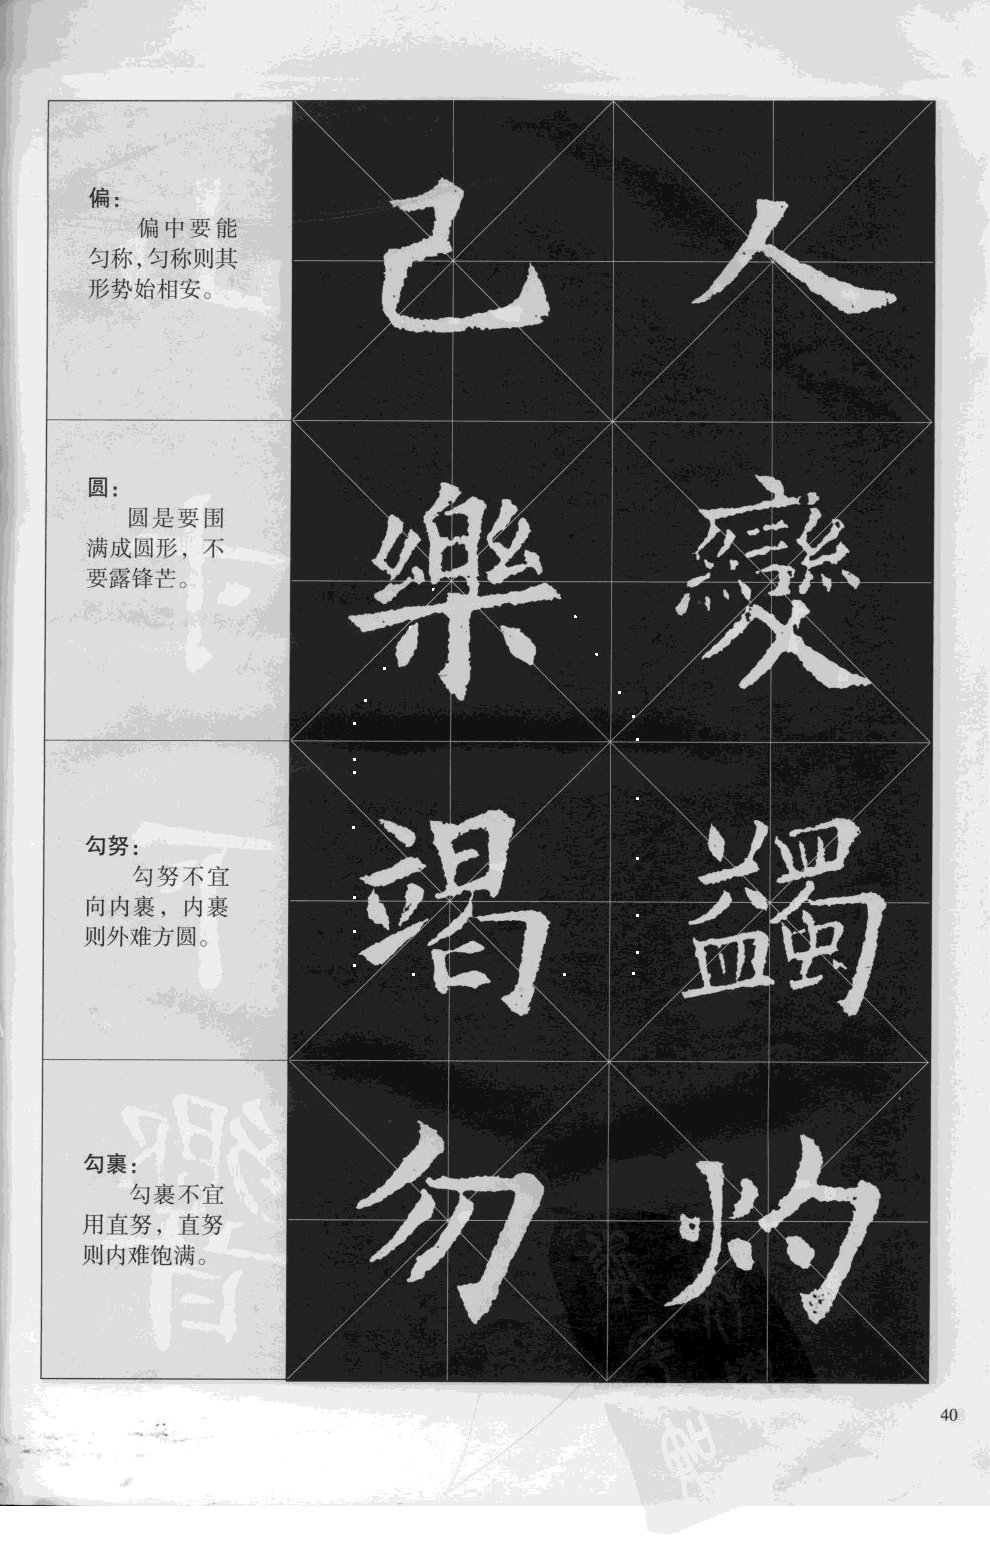 偏：
偏中要能
匀称，匀称则其
形势始相安。
人 己
圆：
圆是要围
满成圆形，不
要露锋芒。
變 樂
勾努：
勾努不宜
向内裹，内裹
则外难方圆。
蠲 竭
勾裹：
勾裹不宜
用直努，直努
则内难饱满。
灼 勿
40